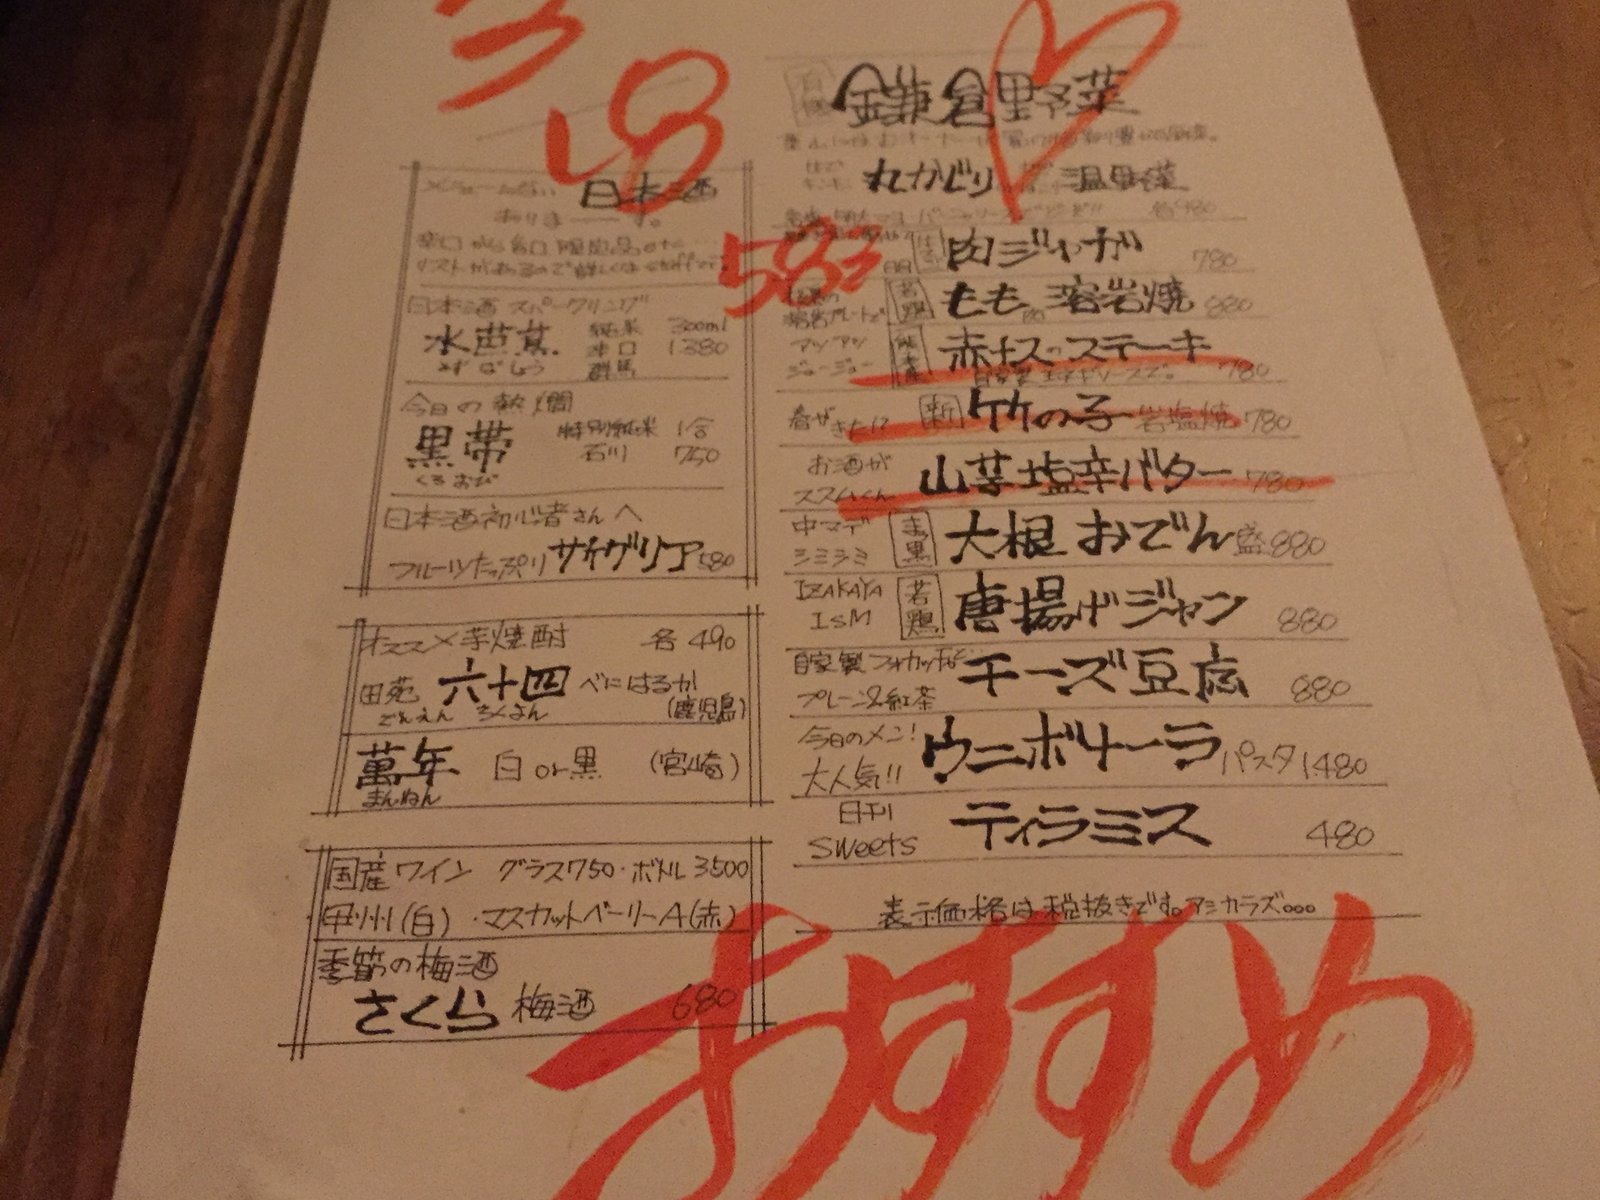 日本酒
日本酒 スパークリング
水芭蕉 純米 300ml
辛口 1380
みずばしょう 群馬
今日の熱燗
黒帯 特別純米 1合
石川 750
くろおび
日本酒初心者さんへ
フルーツたっぷり サケグリア 580
オススメ芋焼酎 各490
田苑 六十四 べにはるか
でんえん ろくよん (鹿児島)
萬年 白or黒 (宮崎)
まんねん
国産ワイン グラス750・ボトル3500
甲州(白)・マスカットベーリーA(赤)
季節の梅酒
さくら 梅酒 680
583
鎌倉野菜
丸かじり 温野菜
各980
肉ジャガ 780
若鶏 もも肉 溶岩焼 880
アツアツ
ジュージュー
赤ナスのステーキ 780
春がきた!? 新 竹の子 岩塩焼 780
お酒が
ススムくん 山芋塩辛バター 780
中マデ
シミシミ
大根 おでん 盛 880
IZAKAYA
ISM 若鶏 唐揚げジャン 880
自家製フォカッチャと
プレーン&紅茶 チーズ豆腐 880
今日のメン!
大人気!! ウニボナーラ パスタ 1480
日刊
sweets ティラミス 480
表示価格は税抜きです。アシカラズ。。。
おすすめ